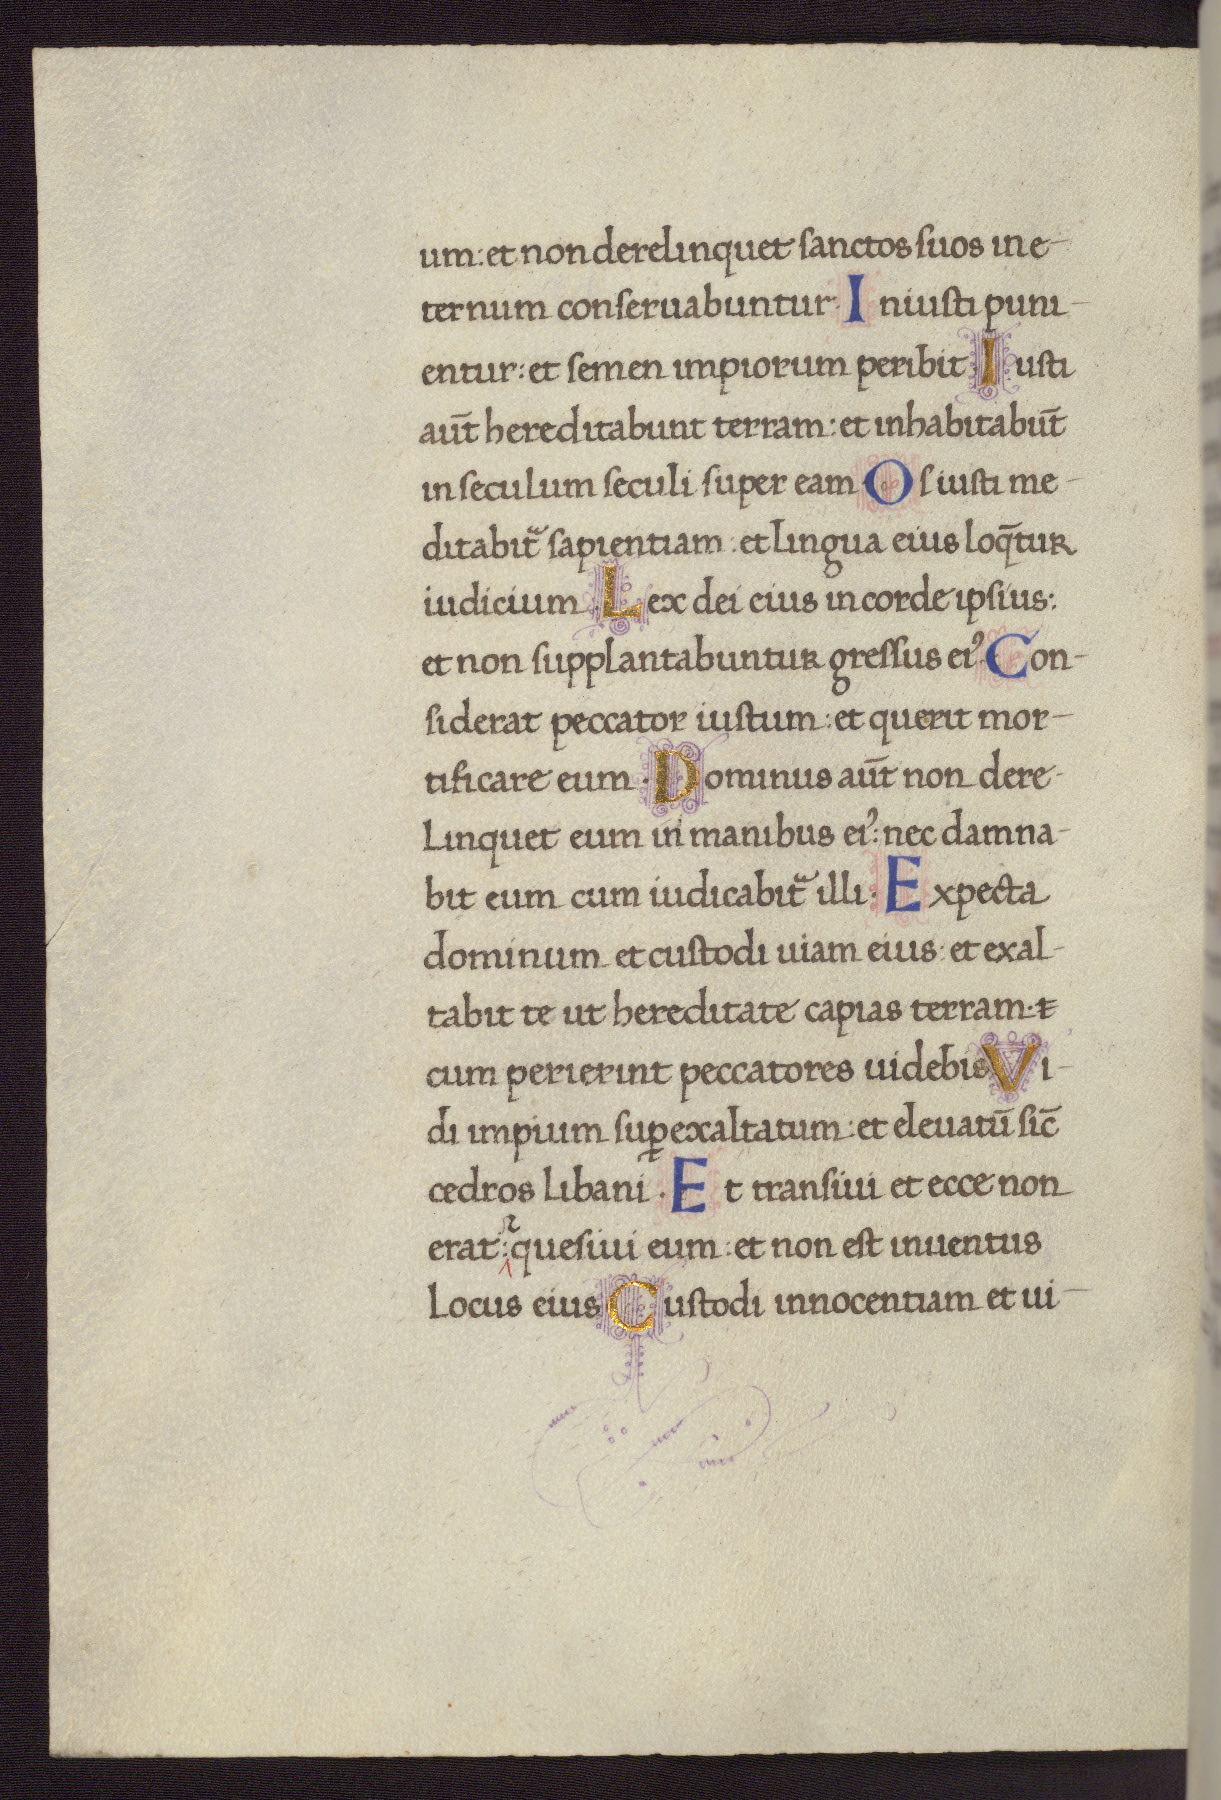 um: et non derelinquet sanctos suos in e-
ternum conseruabuntur. Iniusti puni-
entur: et semen impiorum peribit. Iusti
aut̄ hereditabunt terram: et inhabitabut̄
in seculum seculi super eam. Os iusti me-
ditabit̃ sapientiam: et lingua eius loq̄tur
iudicium. Lex dei eius in corde ipsius:
et non supplantabuntur gressus eiꝰ. Con-
siderat peccator iustum: et querit mor-
tificare eum. Dominus aut̄ non dere-
linquet eum in manibus eiꝰ: nec damna-
bit eum cum iudicabit̃ illi. Expecta
dominum et custodi uiam eius: et exal-
tabit te ut hereditate capias terram: &
cum perierint peccatores uidebis. Vi-
di impium suꝑexaltatum: et eleuatū sic̄
cedros libani. Et transiui et ecce non
erat: & quesiui eum: et non est inuentus
locus eius. Custodi innocentiam et ui-